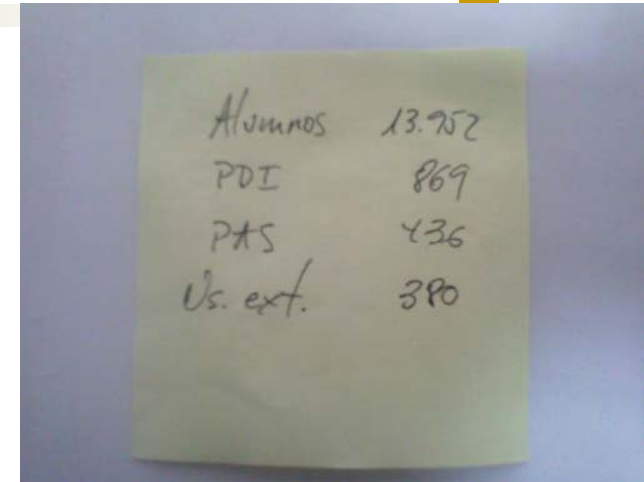 Alumnos 13.952
PDI 869
PAS 436
Us. ext. 380